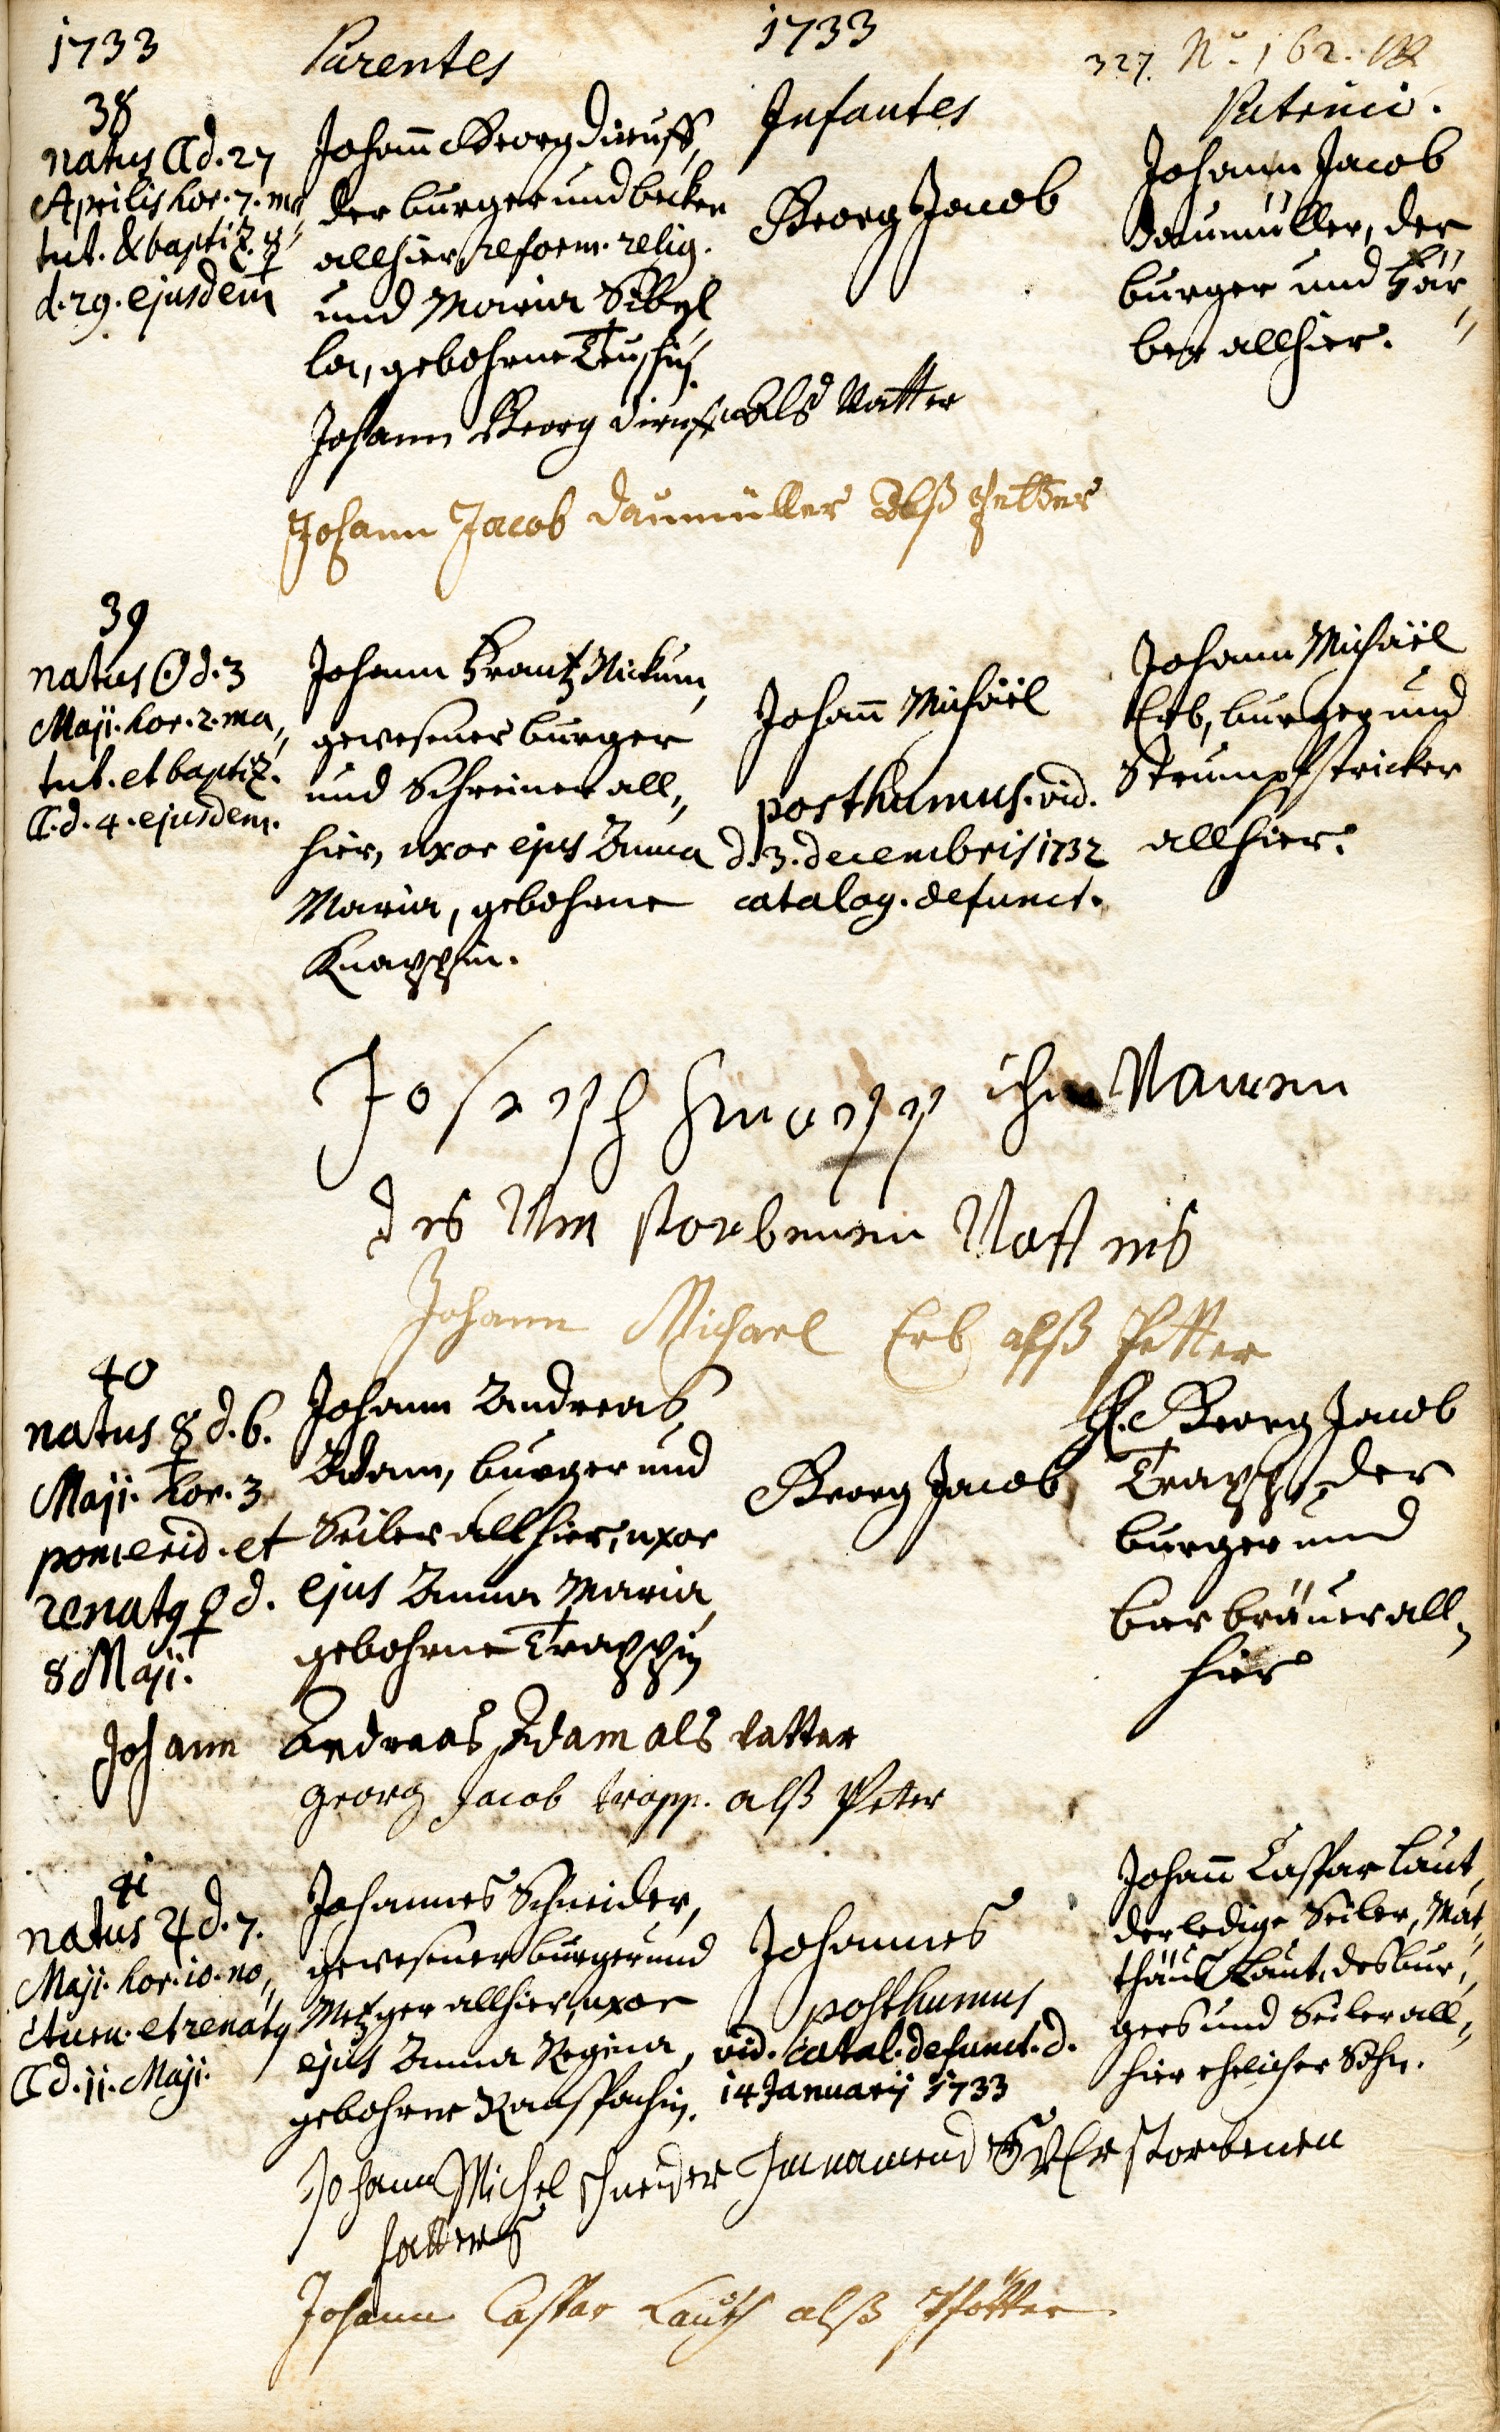 1733
Parentes
1733
327. No. 162.
Infantes
Patrini.
38
natus ☾ d. 27
Aprilis hor. 7. ma„
tut. & baptiz. ☿
d. 29. ejusdem
Johann Georg Dieruff,
der burger und becker
allhier, reform. relig.
und Maria Sibyl„
la, gebohrne
Georg Jacob
Johann Jacob
Daumüller, der
burger und Fär„
ber allhier.
Johann Georg Dieruff als Vatter
Johann Jacob Daumüller Alß Petter
39
natus ☉ d. 3
Maji. hor. 2. ma„
tut. et baptiz.
☾. d. 4. ejusdem.
Johann Frantz Nickum,
gewesener burger
und Schreiner all„
hier, uxor ejus Anna
Maria, gebohrne
Knappin.
Johann Michaël
posthumus. vid.
d. 3. decembris 1732
catalog. defunct.
Johann Michaël
Erb, burger und
Strumpfstricker
allhier.
Joseph Knapp ihm Namen
des Verstorbenen Vatters
Johann Michael Erb alß Petter
40
natus ☿ d. 6.
Maji. hor. 3
pomerid. et
renatq ♀ d.
8 Maji.
Johann Andreas
Adam, burger und
Seiler allhier, uxor
ejus Anna Maria,
gebohrne Trappin
Georg Jacob
H. Georg Jacob
Trapp, der
burger und
bierbräuer all„
hier
Johann Andreas Adam als vatter
Georg Jacob trapp. alß Peter
41
natus ♃ d. 7.
Maji. hor. 10. no„
cturn. et renatq
☾ d. 11. Maji.
Johannes Schneider,
gewesener burger und
Metzger allhier, uxor
ejus Anna Regina,
gebohrne Rausspachin.
Johannes
posthumus
vid. catal. defunct. d.
14 Januarij 1733
Johann Caspar Laut,
der ledige Seiler, Mat„
thäus Laut, des bur„
gers und Seiler all„
hier ehelicher Sohn.
Johann Michel schneider Im namen des Verstorbenen
fatters
Johann Casspar Lauth alß Pfötter